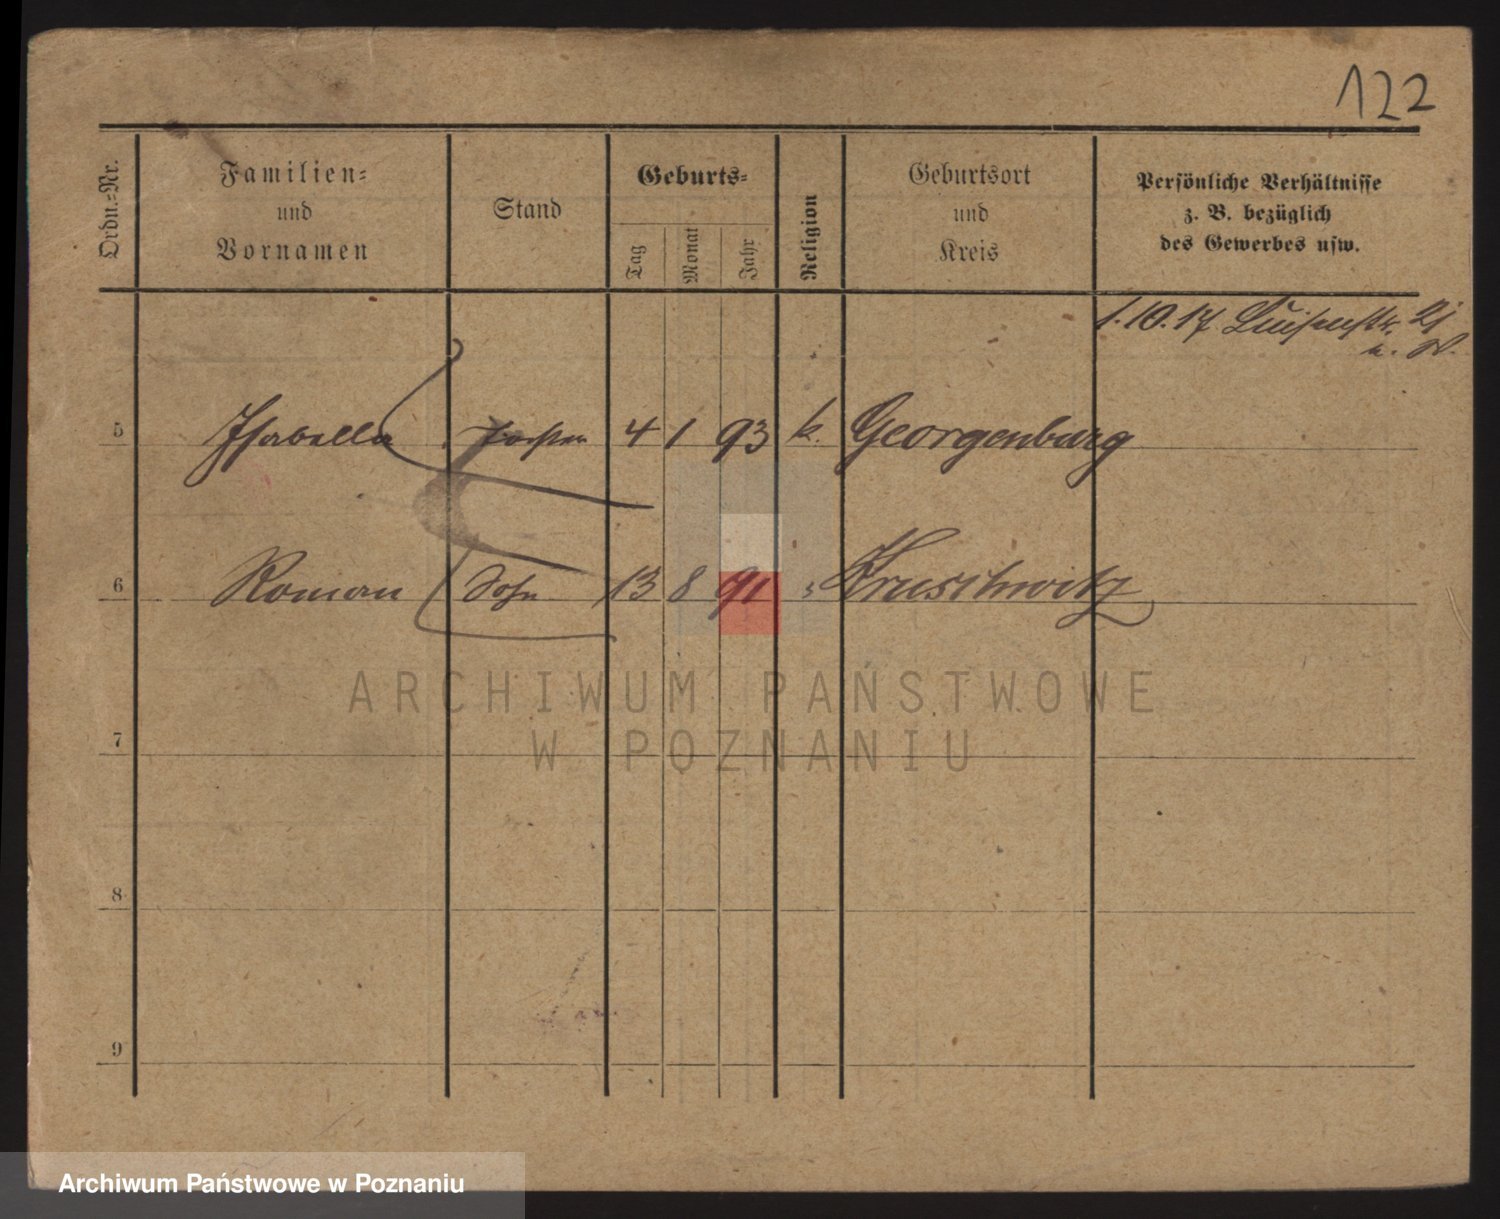 122
Ordn.-Nr.
Familien-
und
Vornamen
Stand
Geburts-
Tag
Monat
Jahr
Religion
Geburtsort
und
Kreis
Persönliche Verhältnisse
z. B. bezüglich
des Gewerbes usw.
1.10.17 Luisenstr.
5 Isabella 4 1 93 k. Georgenburg
6 Roman Sohn 13 8 91 Kruschwitz
7
8
9
ARCHIWUM PAŃSTWOWE
W POZNANIU
Archiwum Państwowe w Poznaniu